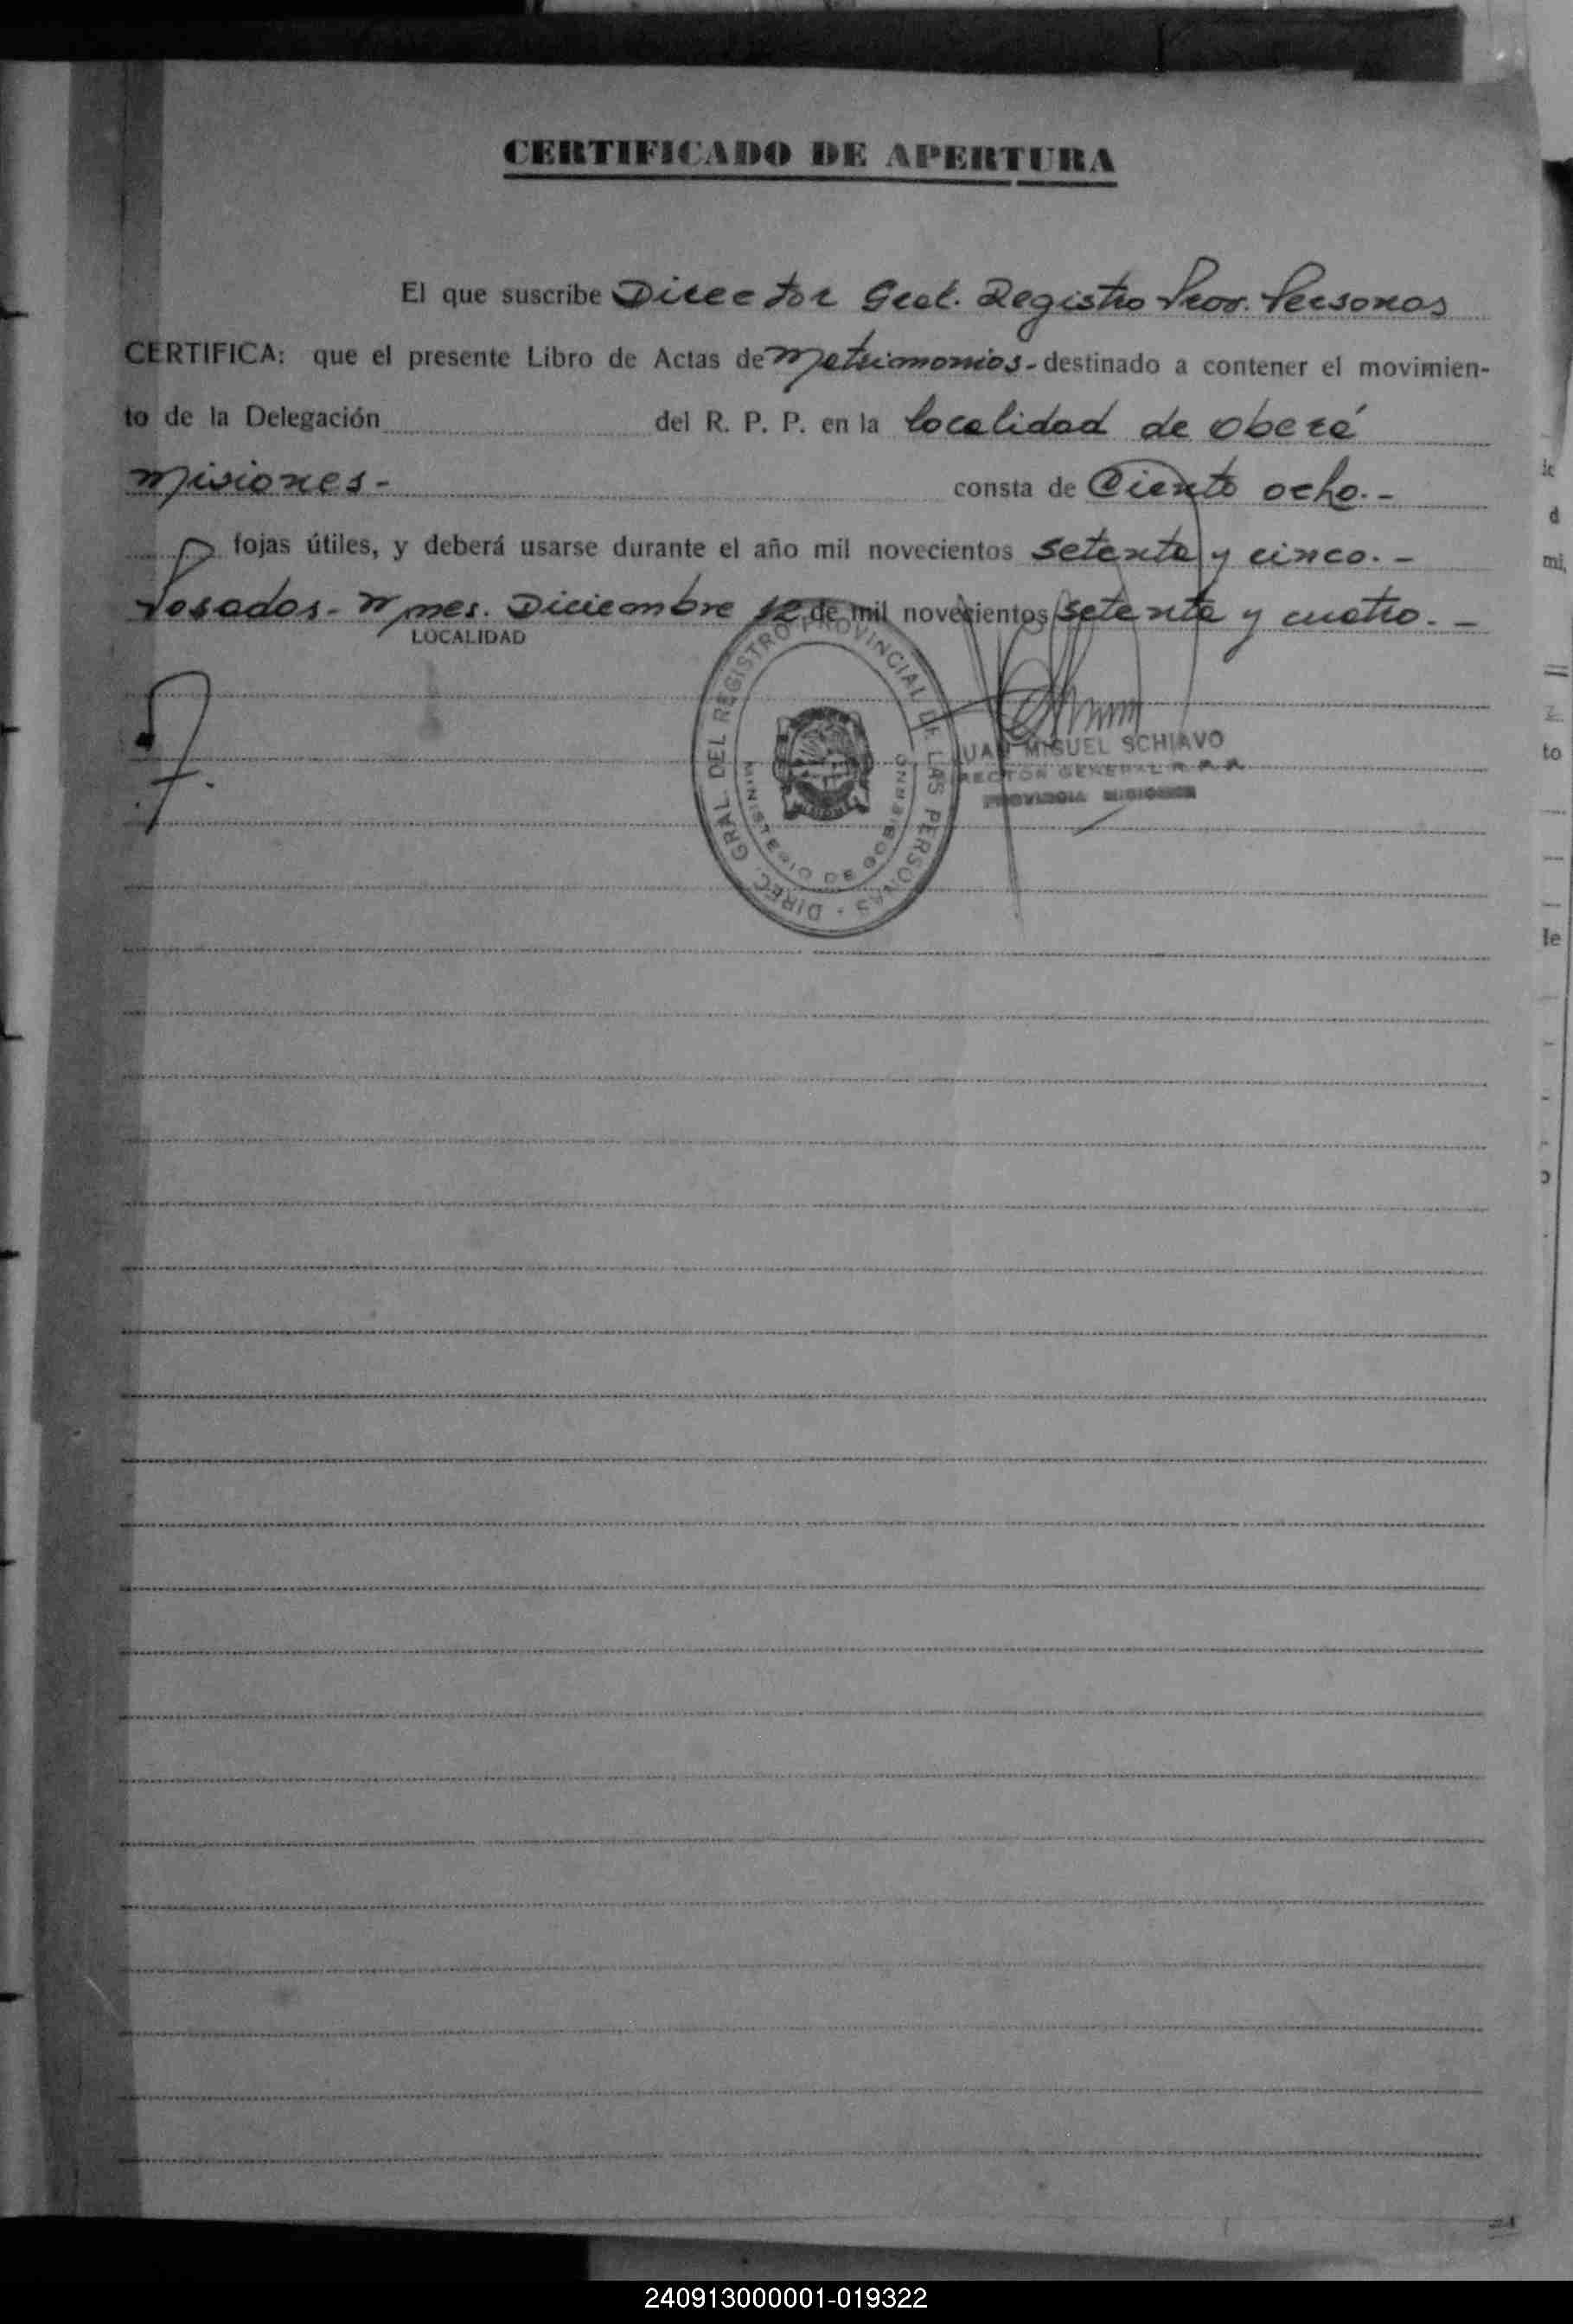 CERTIFICADO DE APERTURA
El que suscribe Director Gral. Registro Prov. Personas
CERTIFICA: que el presente Libro de Actas de Matrimonios.- destinado a contener el movimien-
to de la Delegación del R. P. P. en la localidad de Oberá
Misiones.- consta de Ciento ocho.-
fojas útiles, y deberá usarse durante el año mil novecientos setenta y cinco.-
Posadas.- Mnes. Diciembre 12 de mil novecientos setenta y cuatro.-
LOCALIDAD
DIREC. GRAL. DEL REGISTRO PROVINCIAL DE LAS PERSONAS -
MINISTERIO DE GOBIERNO
JUAN MIGUEL SCHIAVO
DIRECTOR GENERAL R. P. P.
PROVINCIA MISIONES
240913000001-019322